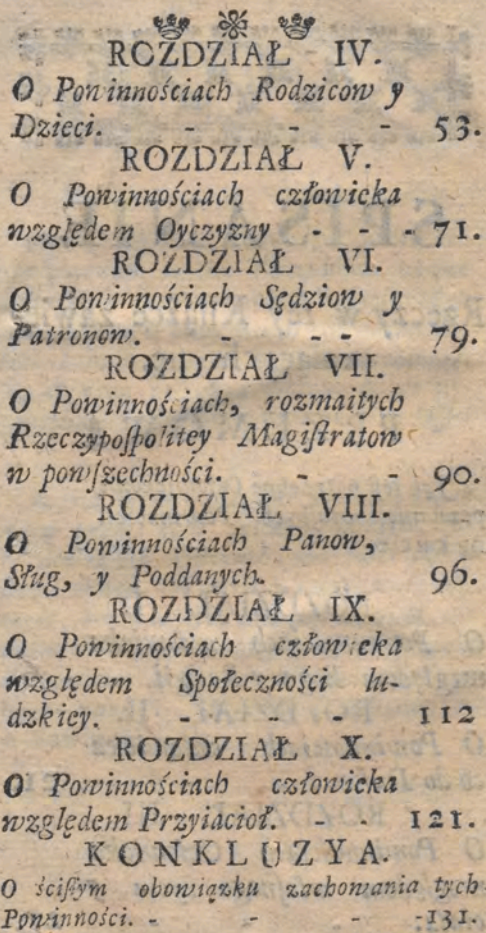 ROZDZIAŁ IV.
O Powinnościach Rodzicow y
Dzieci. - - - 53.
ROZDZIAŁ V.
O Powinnościach człowieka
względem Oyczyzny - - - 71.
ROZDZIAŁ VI.
O Powinnościach Sędziow y
Patronow. - - - 79.
ROZDZIAŁ VII.
O Powinnościach, rozmaitych
Rzeczypoſpolitey Magiſtratow
w powſzechności. - - 90.
ROZDZIAŁ VIII.
O Powinnościach Panow,
Sług, y Poddanych. 96.
ROZDZIAŁ IX.
O Powinnościach człowieka
względem Społeczności lu-
dzkiey. - - - 112
ROZDZIAŁ X.
O Powinnościach człowieka
względem Przyiacioł. - - 121.
KONKLUZYA.
O ściſłym obowiązku zachowania tych
Powinności. - - - -131.